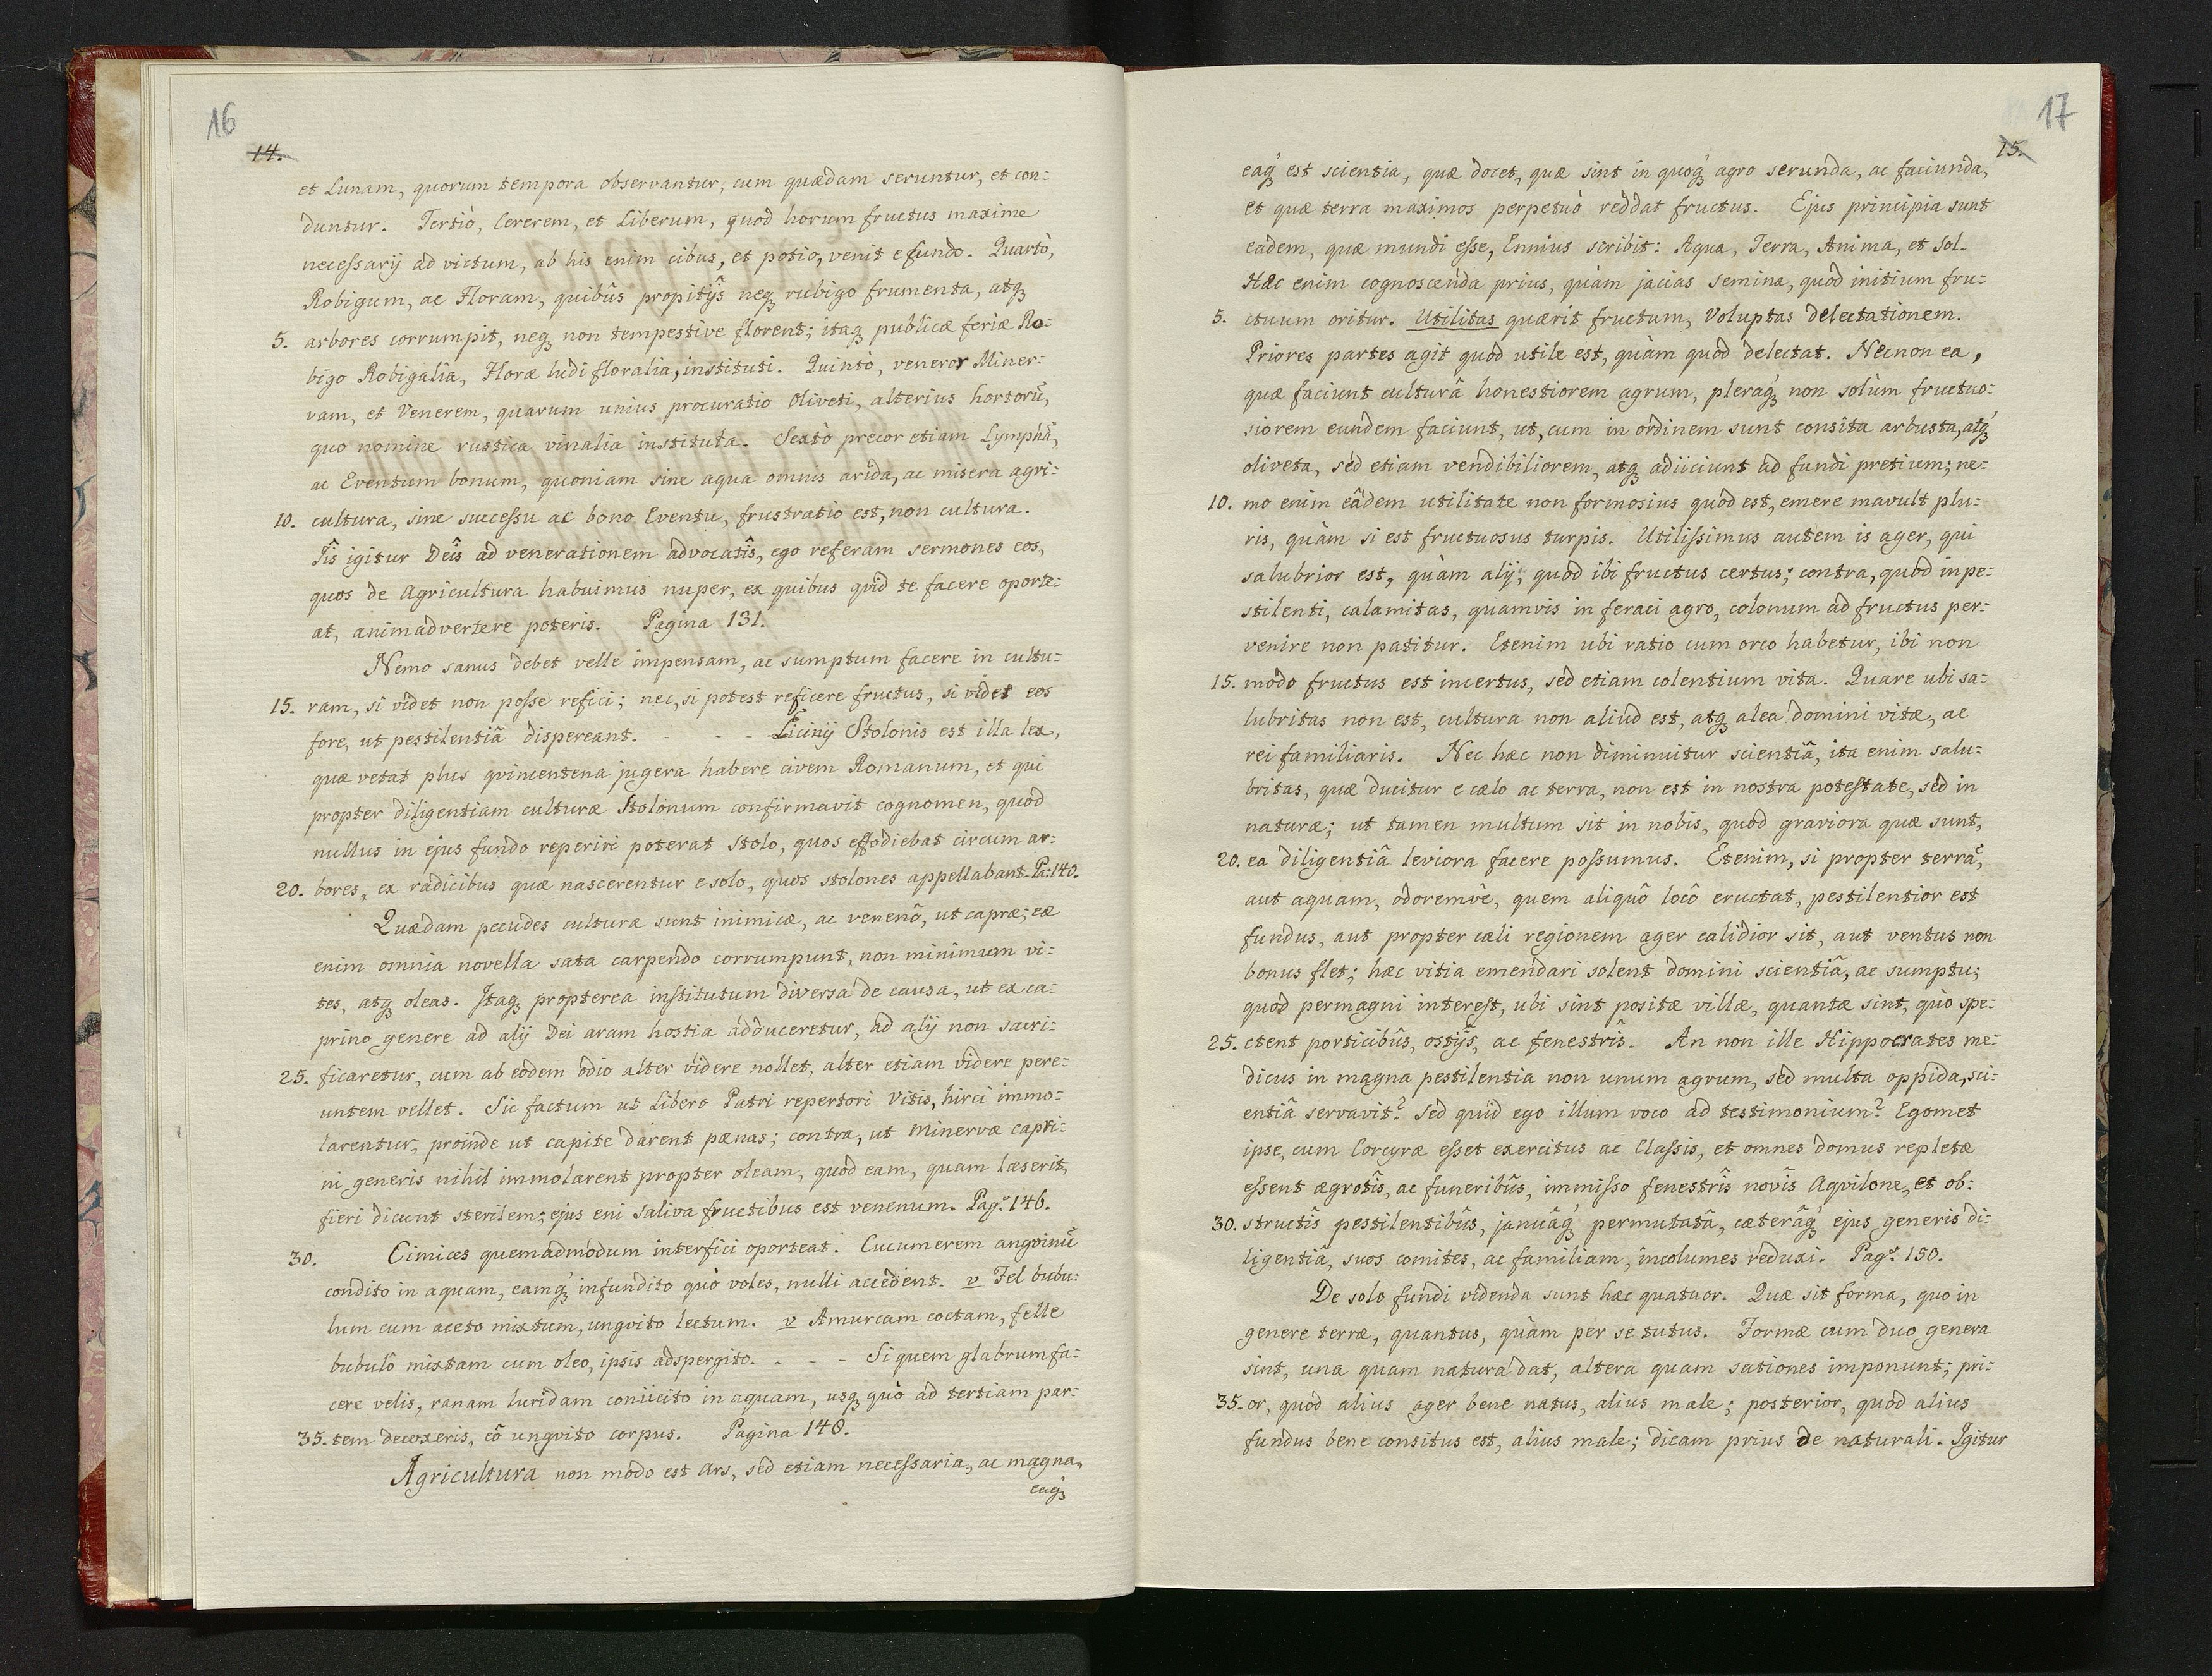 16
14.
et Lunam, quorum tempora observantur, cum quædam seruntur, et con=
duntur. Tertiò, Cererem, et Liberum, quod horum fructus maxime
necessarij ad victum, ab his enim cibus, et potio, venit e fundo. Quartò,
Robigum, ac Floram, quibûs propitijs neq; rubigo frumenta, atq;
5. arbores corrumpit, neq; non tempestive florent; itaq; publicæ feriæ Ro=
bigo Robigalia, Floræ ludi floralia, instituti. Quintò, veneror Miner=
vam, et Venerem, quarum unius procuratio Oliveti, alterius hortorũ,
quo nomine rustica vinalia instituta. Sextò precor etiam Lymphã,
ac Eventum bonum, quoniam sine aqua omnis arida, ac misera agri=
10. cultura, sine successu ac bono Eventu, frustratio est, non cultura.
Iîs igitur Deîs ad venerationem advocatîs, ego referam sermones eos,
quos de Agricultura habuimus nuper, ex quibus quid te facere oporte=
at, animadvertere poteris. Pagina 131.
Nemo sanus debet velle impensam, ac sumptum facere in cultu=
15. ram, si videt non posse refici; nec, si potest reficere fructus, si videt eos
fore, ut pestilentiâ dispereant. - - - Licinij Stolonis est illa lex,
quæ vetat plus qvincentena jugera habere civem Romanum, et qui
propter diligentiam culturæ Stolonum confirmavit cognomen, quod
nullus in ejus fundo reperiri poterat stolo, quos effodiebat circum ar=
20. bores, ex radicibus quæ nascerentur e solo, quos stolones appellabant. Pa: 140.
Quædam pecudes culturæ sunt inimicæ, ac venenô, ut capræ; eæ
enim omnia novella sata carpendo corrumpunt, non minimum vi=
tes, atq; oleas. Itaq; propterea institutum diversa de causa, ut ex ca=
prino genere ad alij Dei aram hostia adduceretur, ad alij non sacri=
25. ficaretur, cum ab eodem odio alter videre nollet, alter etiam videre pere=
untem vellet. Sic factum ut Libero Patri repertori Vitis, hirci immo=
larentur, proinde ut capite darent pænas; contra, ut Minervæ capri=
ni generis nihil immolarent propter oleam, quod eam, quam læserit,
fieri dicunt sterilem; ejus eni saliva fructibus est venenum. Pag: 146.
30. Cimices quemadmodum interfici oporteat. Cucumerem angvinũ
condito in aquam, eamq; infundito quò voles, nulli accedent. v Fel bubu=
lum cum aceto mixtum, ungvito lectum. v Amurcam coctam, felle
bubulô mistam cum oleo, ipsis adspergito. - - - Si quem glabrum fa=
cere velis, ranam luridam coniicito in aquam, usq; quò ad tertiam par=
35. tem decoxeris, eô ungvito corpus. Pagina 148.
Agricultura non modo est Ars, sed etiam necessaria, ac magna,
eaq;
17
15.
eaq; est scientia, quæ docet, quæ sint in quoq; agro serunda, ac faciunda,
et quæ terra maximos perpetuò reddat fructus. Ejus principia sunt
eadem, quæ mundi esse, Ennius scribit: Aqua, Terra, Anima, et Sol.
Hæc enim cognoscenda prius, quàm jacias semina, quod initium fru=
5. ctuum oritur. Utilitas quærit fructum, Voluptas delectationem.
Priores partes agit quod utile est, quàm quod delectat. Necnon ea,
quæ faciunt culturâ honestiorem agrum, pleraq; non solùm fructuo=
siorem eundem faciunt, ut, cum in ordinem sunt consita arbusta, atq;
oliveta, sed etiam vendibiliorem, atq; adiiciunt ad fundi pretium; ne=
10. mo enim eâdem utilitate non formosius quod est, emere mavult plu=
ris, quàm si est fructuosus turpis. Utilissimus autem is ager, qui
salubrior est, quàm alij; quod ibi fructus certus; contra, quod in pe=
stilenti, calamitas, quamvis in feraci agro, colonum ad fructus per=
venire non patitur. Etenim ubi ratio cum orco habetur, ibi non
15. modo fructus est incertus, sed etiam colentium vita. Quare ubi sa=
lubritas non est, cultura non aliud est, atq; alea domini vitæ, ac
rei familiaris. Nec hæc non diminuitur scientiâ, ita enim salu=
britas, quæ ducitur e cælo ac terra, non est in nostra potestate, sed in
naturæ; ut tamen multum sit in nobis, quod graviora quæ sunt,
20. ea diligentiâ leviora facere possumus. Etenim, si propter terrã,
aut aquam, odoremve, quem aliquô locô eructat, pestilentior est
fundus, aut propter cæli regionem ager calidior sit, aut ventus non
bonus flet; hæc vitia emendari solent domini scientiâ, ac sumptu;
quod permagni interest, ubi sint positæ villæ, quantæ sint, quò spe=
25. ctent porticibûs, ostijs, ac fenestrîs. An non ille Hippocrates me=
dicus in magna pestilentia non unum agrum, sed multa oppida, sci=
entiâ servavit? Sed quid ego illum voco ad testimonium? Egomet
ipse, cum Corcyræ esset exercitus ac Classis, et omnes domus repletæ
essent ægrotîs, ac funeribûs, immisso fenestrîs novîs Aqvilone, et ob=
30. structîs pestilentibûs, januâq; permutatâ, cæterâq; ejus generis di=
ligentiâ, suos comites, ac familiam, incolumes reduxi. Pag: 150.
De solo fundi videnda sunt hæc quatuor. Quæ sit forma, quo in
genere terræ, quantus, quàm per se tutus. Formæ cum duo genera
sint, una quam natura dat, altera quam sationes imponunt; pri=
35. or, quod alius ager bene natus, alius male; posterior, quod alius
fundus bene consitus est, alius male; dicam prius de naturali. Igitur